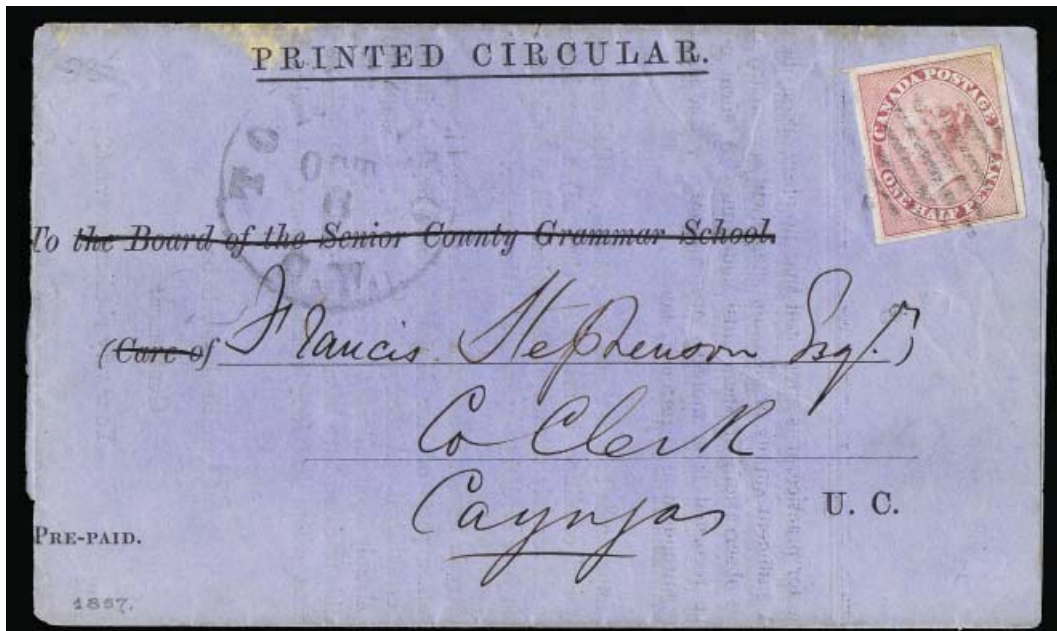 PRINTED CIRCULAR.
CANADA POSTAGE
ONE HALF PENNY
TORONTO
OCT
C.W.
To the Board of the Senior County Grammar School.
(Care of Francis Stephenson Esqr.)
Co Clerk
Cayugas
U. C.
PRE-PAID.
1857.